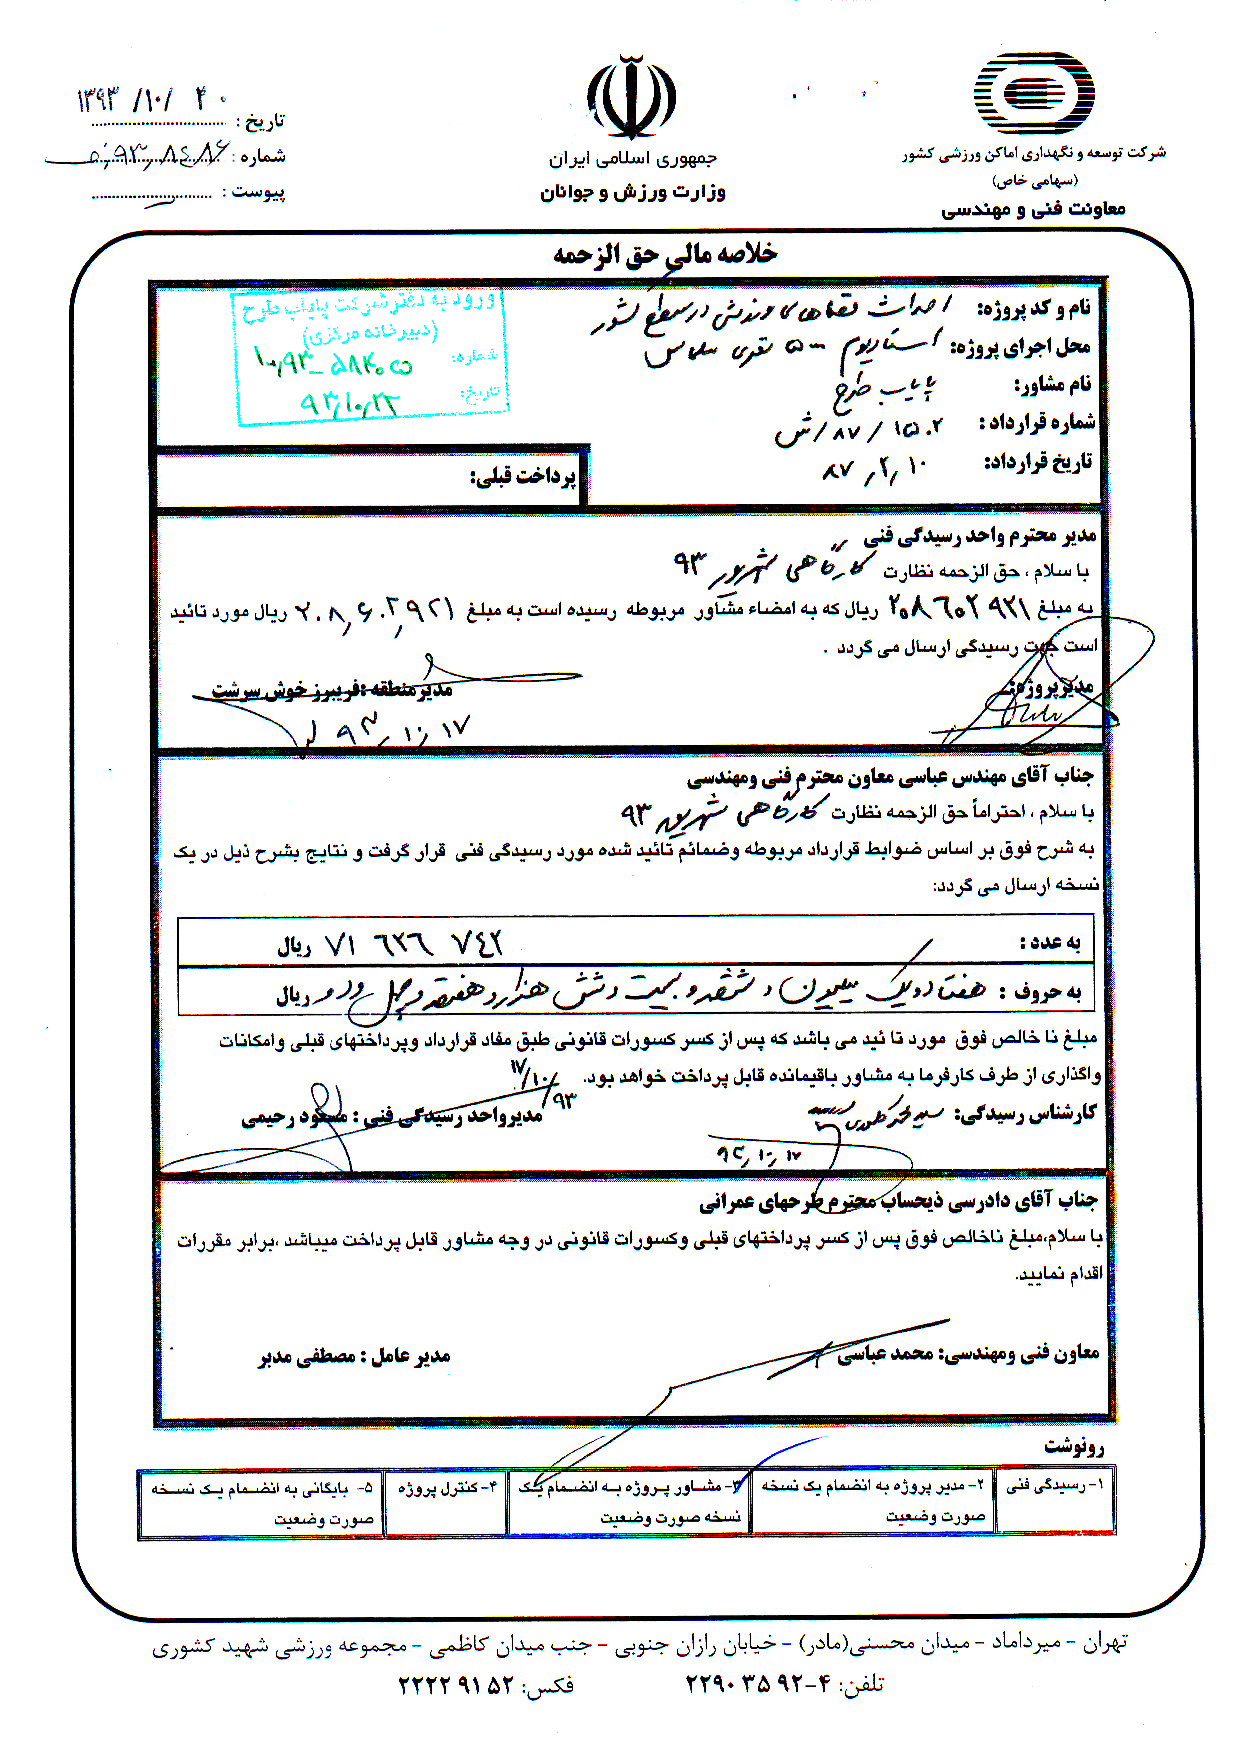 تاریخ: ۱۳۹۳/۱۰/۲۰
شماره:
پیوست:
جمهوری اسلامی ایران
وزارت ورزش و جوانان
شرکت توسعه و نگهداری اماکن ورزشی کشور
(سهامی خاص)
معاونت فنی و مهندسی
خلاصه مالی حق الزحمه
ورود به دفتر شرکت پایاب طرح
(دبیرخانه مرکزی)
شماره:
تاریخ: ۹۳/۱۰/۲۲
نام و کد پروژه: احداث فضاهای ورزشی در سطح کشور
محل اجرای پروژه: استادیوم ۵۰۰۰ نفری سلماس
نام مشاور: پایاب طرح
شماره قرارداد: ۱۵۰۲/۸۷/ش
تاریخ قرارداد: ۸۷/۲/۱۰
پرداخت قبلی:
مدیر محترم واحد رسیدگی فنی
با سلام ، حق الزحمه نظارت کارگاهی شهریور ۹۳
به مبلغ ۲۰۸۶۰۲۹۲۱ ریال که به امضاء مشاور مربوطه رسیده است به مبلغ ۲۰۸,۶۰۲,۹۲۱ ریال مورد تائید
است جهت رسیدگی ارسال می گردد .
مدیرپروژه:
مدیرمنطقه :فریبرز خوش سرشت
۹۳/۱۰/۱۷
جناب آقای مهندس عباسی معاون محترم فنی ومهندسی
با سلام ، احتراماً حق الزحمه نظارت کارگاهی شهریور ۹۳
به شرح فوق بر اساس ضوابط قرارداد مربوطه وضمائم تائید شده مورد رسیدگی فنی قرار گرفت و نتایج بشرح ذیل در یک
نسخه ارسال می گردد:
به عدد : ۷۱ ۶۲۶ ۷۴۲ ریال
به حروف : هفتاد و یک میلیون و ششصد و بیست و شش هزار و هفتصد و چهل و دو ریال
مبلغ نا خالص فوق مورد تا ئید می باشد که پس از کسر کسورات قانونی طبق مفاد قرارداد وپرداختهای قبلی وامکانات
واگذاری از طرف کارفرما به مشاور باقیمانده قابل پرداخت خواهد بود.
۱۷/۱۰/۹۳
کارشناس رسیدگی:
مدیرواحد رسیدگی فنی : مسعود رحیمی
۹۳/۱۰/۱۷
جناب آقای دادرسی ذیحساب محترم طرحهای عمرانی
با سلام،مبلغ ناخالص فوق پس از کسر پرداختهای قبلی وکسورات قانونی در وجه مشاور قابل پرداخت میباشد ،برابر مقررات
اقدام نمایید.
معاون فنی ومهندسی: محمد عباسی
مدیر عامل : مصطفی مدبر
رونوشت
۱- رسیدگی فنی
۲- مدیر پروژه به انضمام یک نسخه
صورت وضعیت
۳- مشاور پروژه به انضمام یک
نسخه صورت وضعیت
۴- کنترل پروژه
۵- بایگانی به انضمام یک نسخه
صورت وضعیت
تهران - میرداماد - میدان محسنی(مادر) - خیابان رازان جنوبی - جنب میدان کاظمی - مجموعه ورزشی شهید کشوری
تلفن: ۴-۲۲۹۰۳۵۹۲
فکس: ۲۲۲۲۹۱۵۲